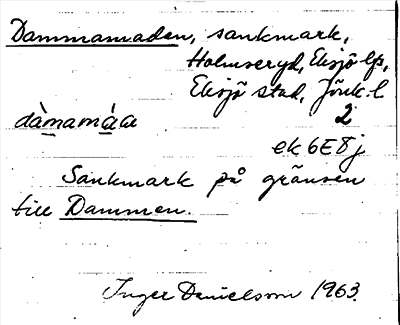 Dammamaden, sankmark,
Holmseryd, Eksjö lfs,
Eksjö stad, Jönk. l
dàmamáa 2
ek 6E8j
Sankmark på gränsen
till Dammen.
Inger Danielsson 1963.